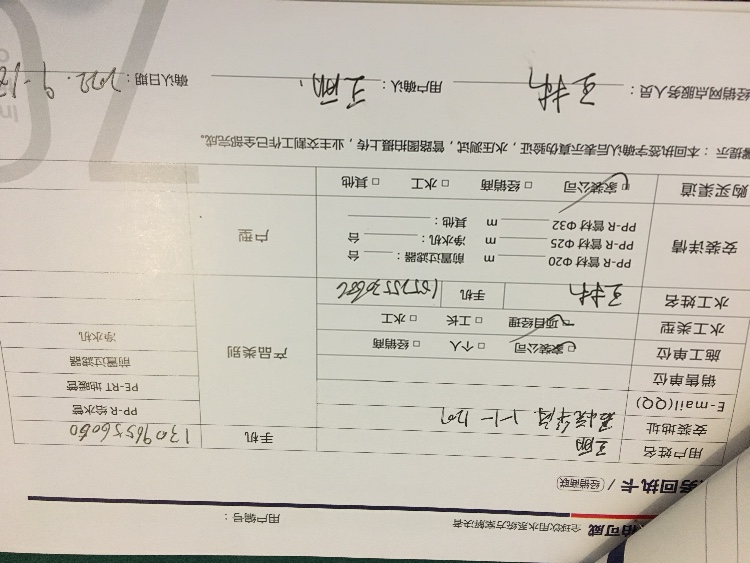 柏可威 全球饮用水系统方案解决者
用户编号：
务回执卡 / 经销商联
用户姓名 王丽 手机 13096556060
安装地址 1-1-1201
E-mail(QQ)
销售单位
施工单位 □家装公司 □个人 □经销商
水工类型 □项目经理 □工长 □水工
水工姓名 王林 手机
产品类别
PP-R 给水管
PE-RT 地暖管
前置过滤器
净水机
安装详情
PP-R 管材 Φ20 m 前置过滤器： 台
PP-R 管材 Φ25 m 净水机： 台
PP-R 管材 Φ32 m 其他：
户型
购买渠道 □家装公司 □经销商 □水工 □其他
馨提示：本回执签字确认后表示真伪验证，水压测试，管路图拍摄上传，业主交割工作已全部完成。
经销网点服务人员： 王林 用户确认： 王丽 确认日期： 2022. 9-12